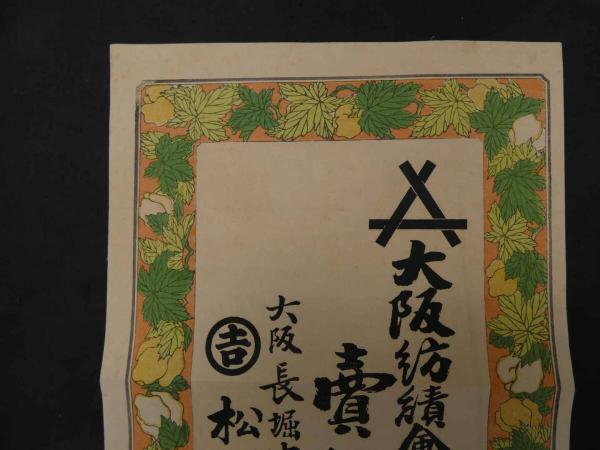 大阪紡績
賣
大阪長堀
吉
松